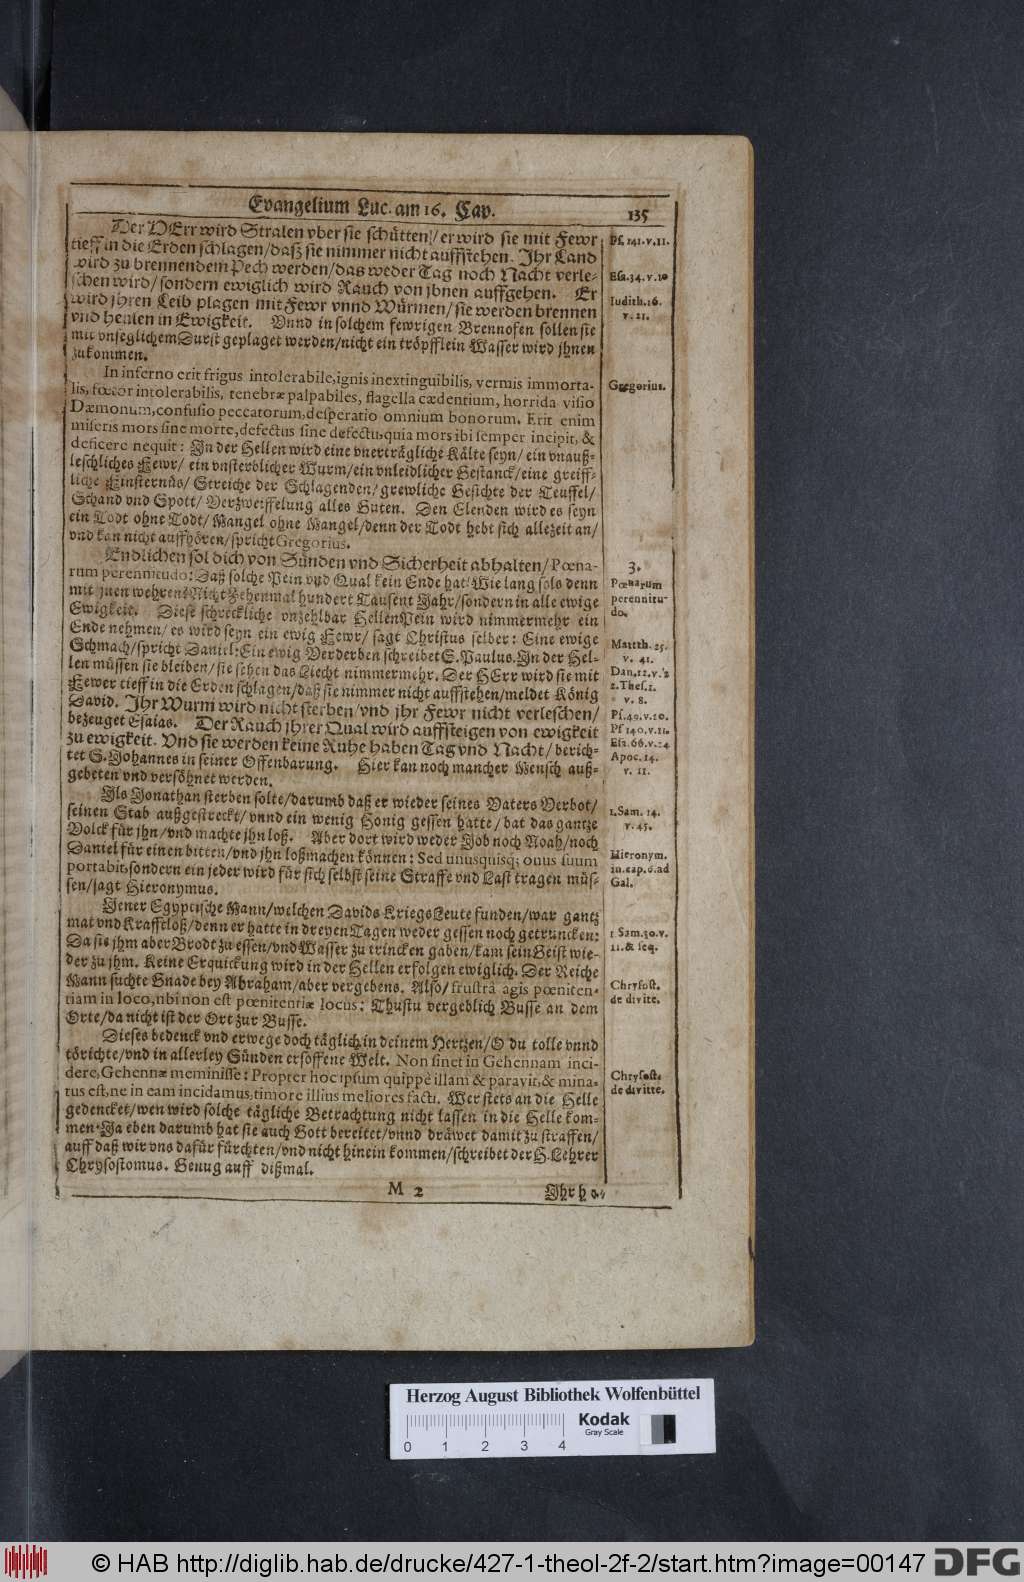 Evangelium Luc. am 16. Cap.
135
Der HErr wird Stralen vber sie schütten/ er wird sie mit Fewr
tieff in die Erden schlagen/daß sie nimmer nicht auffstehen. Ihr Land
wird zu brennendem Pech werden/das weder Tag noch Nacht verle-
schen wird/sondern ewiglich wird Rauch von jhnen auffgehen. Er
wird jhren Leib plagen mit Fewr vnnd Würmen/sie werden brennen
vnd heulen in Ewigkeit. Vnnd in solchem fewrigen Brennofen sollen sie
mit vnseglichem Durst geplaget werden/nicht ein tröpfflein Wasser wird jhnen
zukommen.
In inferno erit frigus intolerabile, ignis inextinguibilis, vermis immorta-
lis, fœtor intolerabilis, tenebræ palpabiles, flagella cædentium, horrida visio
Dæmonum, confusio peccatorum, desperatio omnium bonorum. Erit enim
miseris mors sine morte, defectus sine defectu, quia mors ibi semper incipit, &
deficere nequit: In der Hellen wird eine vnerträgliche Kälte seyn/ein vnauß-
leschliches Fewr/ ein vnsterblicher Wurm/ein vnleidlicher Gestanck/eine greiff-
liche Finsternüs/ Streiche der Schlagenden/grewliche Gesichte der Teuffel/
Schand vnd Spott/ Verzweiffelung alles Guten. Den Elenden wird es seyn
ein Todt ohne Todt/ Mangel ohne Mangel/denn der Todt hebt sich allezeit an/
vnd kan nicht auffhören/spricht Gregorius.
Endlichen sol dich von Sünden vnd Sicherheit abhalten/ Pœna-
rum perennitudo: Daß solche Pein vnd Qual kein Ende hat/ Wie lang sols denn
mit jnen wehren? Nicht Zehenmal hundert Tausent Jahr/sondern in alle ewige
Ewigkeit. Diese schreckliche vnzehlbar HellenPein wird nimmermehr ein
Ende nehmen/ es wird seyn ein ewig Fewr/ sagt Christus selber: Eine ewige
Schmach/spricht Daniel: Ein ewig Verderben schreibet S. Paulus. In der Hel-
len müssen sie bleiben/sie sehen das Liecht nimmermehr. Der HErr wird sie mit
Fewer tieff in die Erden schlagen/daß sie nimmer nicht auffstehen/meldet König
David. Ihr Wurm wird nicht sterben/vnd jhr Fewr nicht verleschen/
bezeuget Esaias. Der Rauch jhrer Qual wird auffsteigen von ewigkeit
zu ewigkeit. Vnd sie werden keine Ruhe haben Tag vnd Nacht/ berich-
tet S. Johannes in seiner Offenbarung. Hier kan noch mancher Mensch auß-
gebeten vnd versöhnet werden.
Als Jonathan sterben solte/darumb daß er wieder seines Vaters Verbot/
seinen Stab außgestreckt/vnnd ein wenig Honig gessen hatte/ bat das gantze
Volck für jhn/vnd machte jhn loß. Aber dort wird weder Job noch Noah/noch
Daniel für einen bitten/vnd jhn loßmachen können: Sed unusquisq; onus suum
portabit, sondern ein jeder wird für sich selbst seine Straffe vnd Last tragen müs-
sen/sagt Hieronymus.
Jener Egyptische Mann/welchen Davids KriegsLeute funden/war gantz
mat vnd Krafftloß/denn er hatte in dreyen Tagen weder gessen noch getruncken:
Da sie jhm aber Brodt zu essen/vnd Wasser zu trincken gaben/kam sein Geist wie-
der zu jhm. Keine Erquickung wird in der Hellen erfolgen ewiglich. Der Reiche
Mann suchte Gnade bey Abraham/aber vergebens. Also/ frustrà agis pœniten-
tiam in loco, ubi non est pœnitentiæ locus: Thustu vergeblich Busse an dem
Orte/da nicht ist der Ort zur Busse.
Dieses bedenck vnd erwege doch täglich in deinem Hertzen/O du tolle vnnd
törichte/vnd in allerley Sünden ersoffene Welt. Non sinet in Gehennam inci-
dere, Gehennæ meminisse: Propter hoc ipsum quippè illam & paravit, & mina-
tus est, ne in eam incidamus, timore illius meliores facti. Wer stets an die Helle
gedencket/wen wird solche tägliche Betrachtung nicht lassen in die Helle kom-
men. Ja eben darumb hat sie auch Gott bereitet/vnnd dräwet damit zu straffen/
auff daß wir vns dafür fürchten/vnd nicht hinein kommen/schreibet der H. Lehrer
Chrysostomus. Genug auff dißmal.
M 2
Ihr h
Ps. 141. v. 11.
Esa. 34. v. 10
Iudith. 16.
v. 21.
Gregorius.
3.
Pœnarum
perennitu-
do.
Matth. 25.
v. 41.
Dan. 12. v. 2
2. Thes. 1.
v. 8.
Ps. 49. v. 20.
Ps 140. v. 11.
Esa. 66. v. 24
Apoc. 14.
v. 11.
1. Sam. 14.
v. 45.
Hieronym.
in cap. 6. ad
Gal.
1 Sam. 30. v.
11. & seq.
Chrysost.
de divite.
Chrysost.
de divitte.
Herzog August Bibliothek Wolfenbüttel
0 1 2 3 4
Kodak
Gray Scale
© HAB http://diglib.hab.de/drucke/427-1-theol-2f-2/start.htm?image=00147
DFG